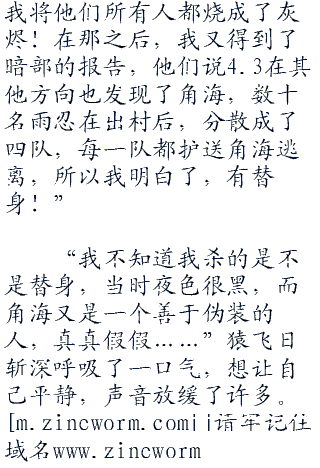 我将他们所有人都烧成了灰
烬！在那之后，我又得到了
暗部的报告，他们说4.3在其
他方向也发现了角海，数十
名雨忍在出村后，分散成了
四队，每一队都护送角海逃
离，所以我明白了，有替
身！”
“我不知道我杀的是不
是替身，当时夜色很黑，而
角海又是一个善于伪装的
人，真真假假……”猿飞日
斩深呼吸了一口气，想让自
己平静，声音放缓了许多。
[m.zincworm.com||请牢记住
域名www.zincworm